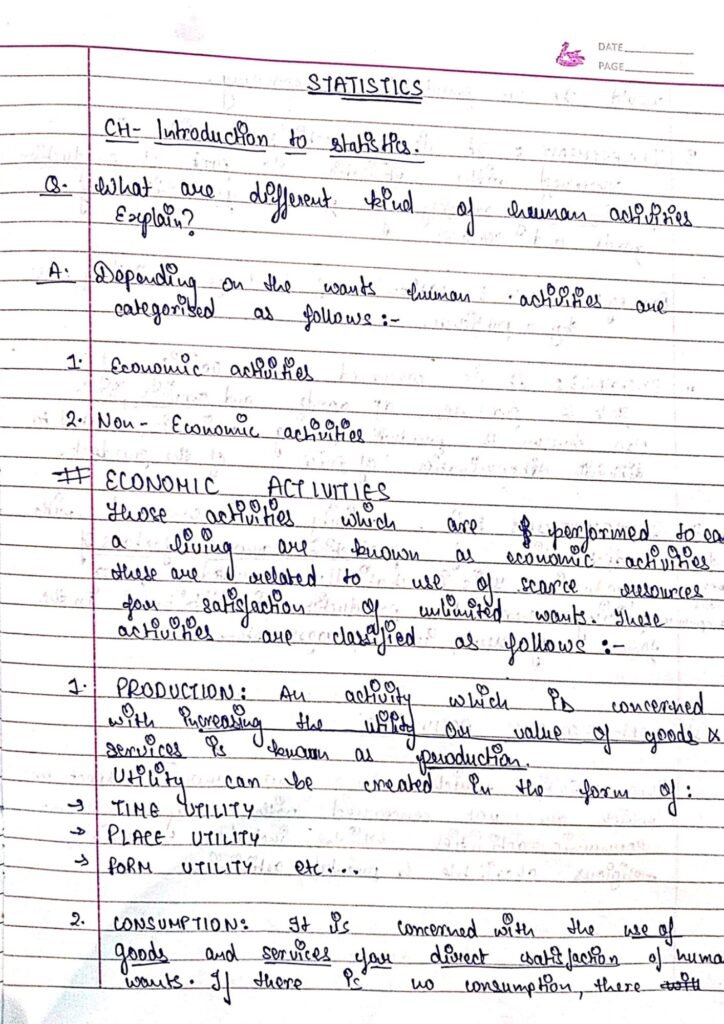 DATE
PAGE
STATISTICS
CH- Introduction to statistics.
Q. What are different kind of human activities
Explain?
A. Depending on the wants human activities are
categorised as follows :-
1. Economic activities
2. Non - Economic activities
# ECONOMIC ACTIVITIES
Those activities which are performed to ea
a living are known as economic activities
these are related to use of scarce resources
for satisfaction of unlimited wants. These
activities are classified as follows :-
1. PRODUCTION: An activity which is concerned
with increasing the utility or value of goods &
services is known as production.
Utility can be created in the form of :
→ TIME UTILITY
→ PLACE UTILITY
→ FORM UTILITY etc....
2. CONSUMPTION: It is concerned with the use of
goods and services for direct satisfaction of huma
wants. If there is no consumption, there